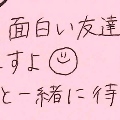 面白い友達
すよ☺
と一緒に待